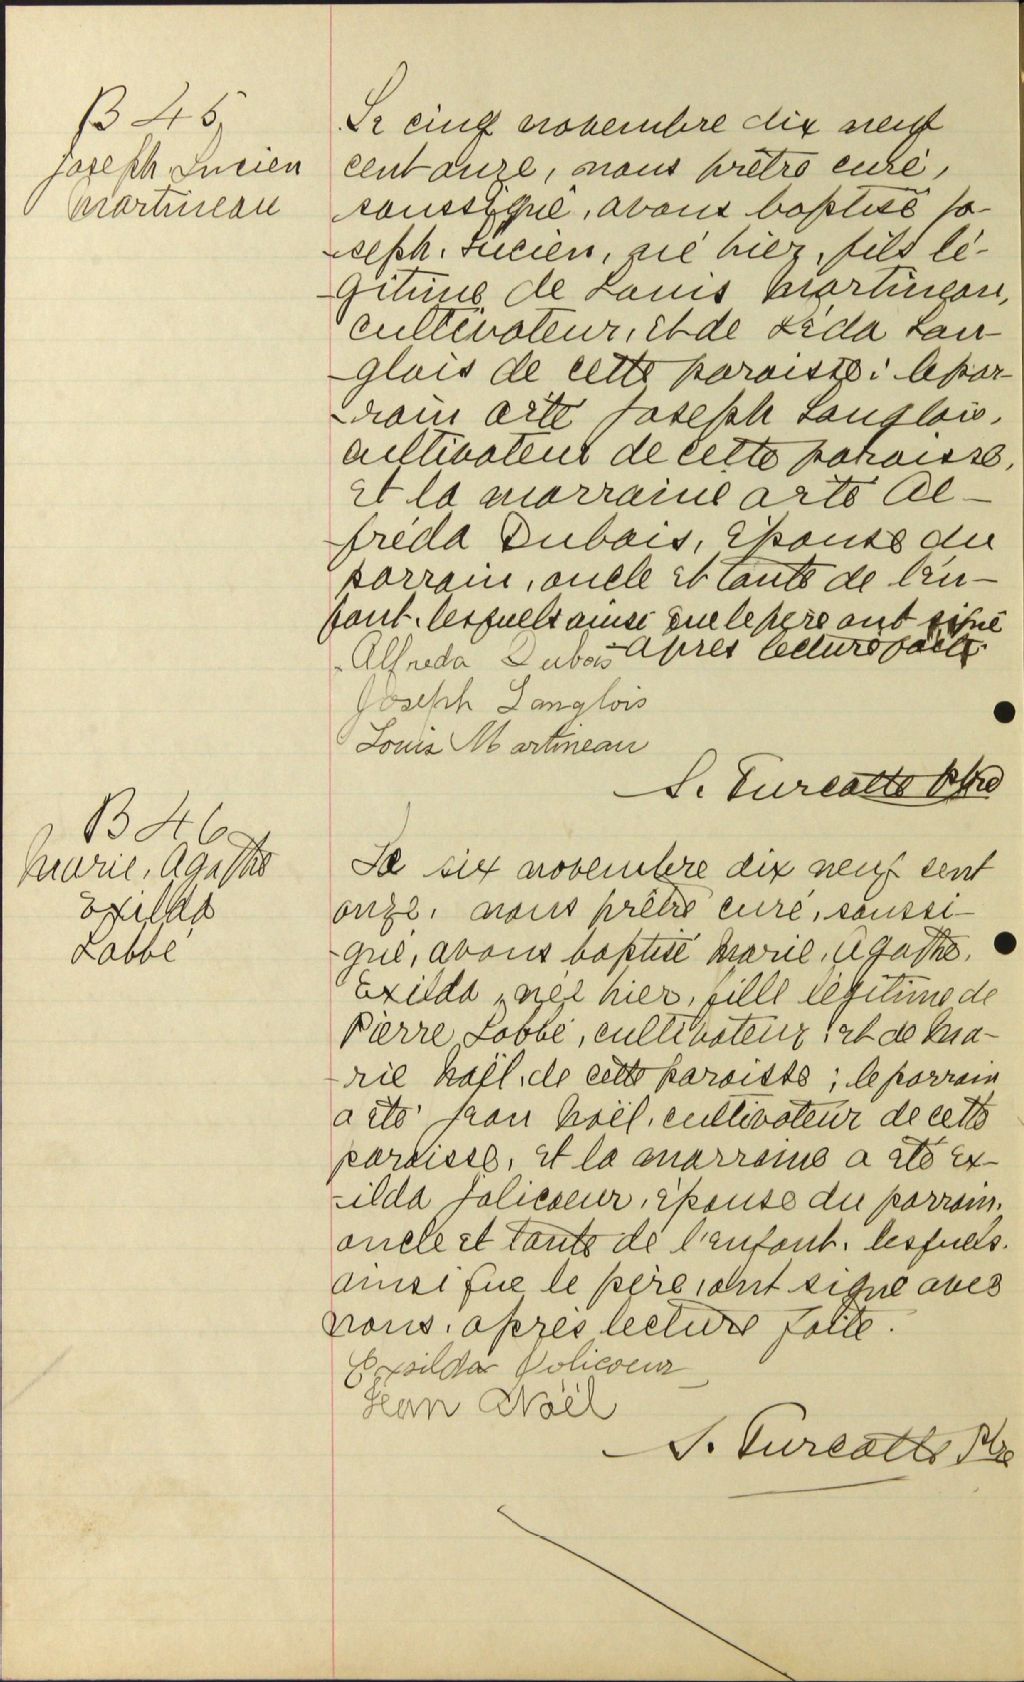 B 45
Joseph. Lucien
Martineau
Le cinq novembre dix neuf
cent onze, nous prêtre curé,
soussigné, avons baptisé Jo-
-seph. Lucien, né hier, fils lé-
-gitime de Louis Martineau,
cultivateur, et de Léda Lan-
-glois de cette paroisse: le par-
-rain a été Joseph Langlois,
cultivateur de cette paroisse,
et la marraine a été Al-
-fréda Dubois, épouse du
parrain, oncle et tante de l'en-
fant, lesquels ainsi que le père ont signé
après lecture faite.
Alfreda Dubois
Joseph Langlois
Louis Martineau
S. Turcotte Ptre
B 46
Marie, Agathe
Exilda
Labbé
Le six novembre dix neuf cent
onze, nous prêtre curé, soussi-
-gné, avons baptisé Marie, Agathe,
Exilda, née hier, fille légitime de
Pierre Labbé, cultivateur, et de Ma-
-rie Noël, de cette paroisse; le parrain
a été Jean Noël, cultivateur de cette
paroisse, et la marraine a été Ex-
-ilda Jolicoeur, épouse du parrain,
oncle et tante de l'enfant, lesquels,
ainsi que le père, ont signé avec
nous, après lecture faite.
Exilda Jolicoeur
Jean Noël
S. Turcotte Ptre